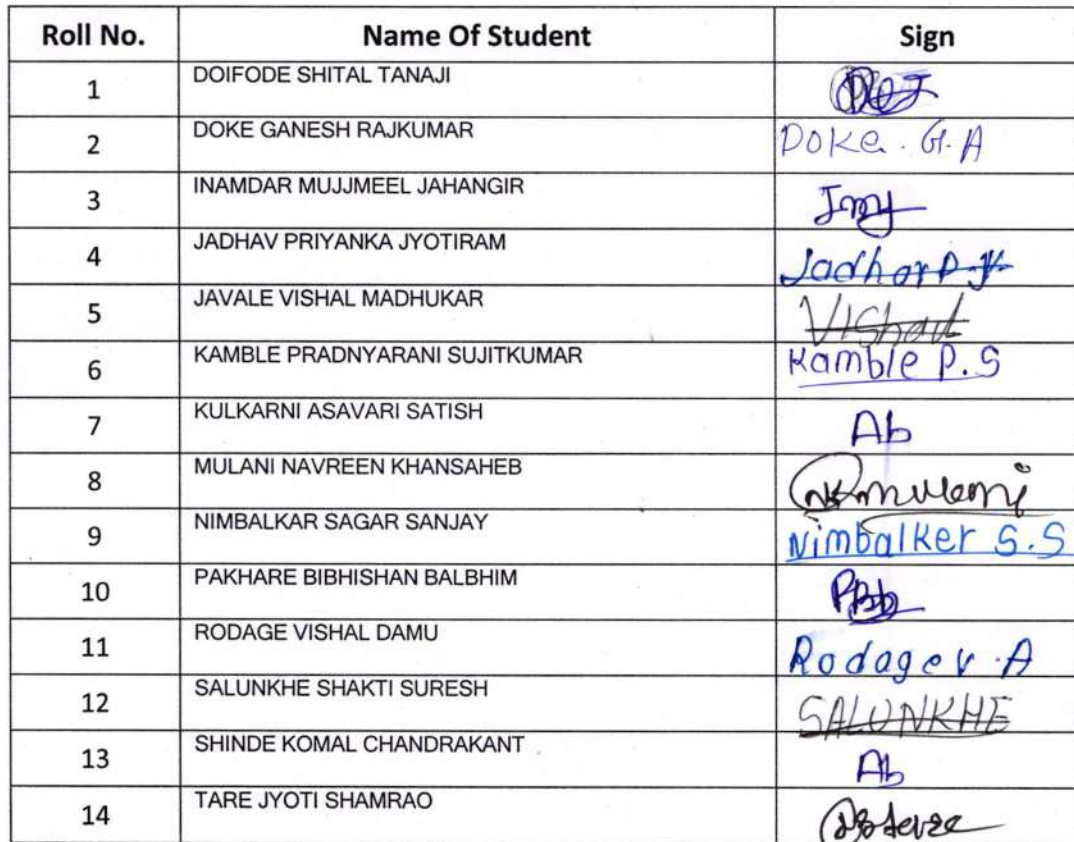 Roll No. Name Of Student Sign
1 DOIFODE SHITAL TANAJI
2 DOKE GANESH RAJKUMAR Doke. G.A
3 INAMDAR MUJJMEEL JAHANGIR
4 JADHAV PRIYANKA JYOTIRAM Jadhav P.J.
5 JAVALE VISHAL MADHUKAR Vishal
6 KAMBLE PRADNYARANI SUJITKUMAR Kamble P.S
7 KULKARNI ASAVARI SATISH Ab
8 MULANI NAVREEN KHANSAHEB
9 NIMBALKAR SAGAR SANJAY Nimbalker S.S
10 PAKHARE BIBHISHAN BALBHIM
11 RODAGE VISHAL DAMU Rodage V.A
12 SALUNKHE SHAKTI SURESH SALUNKHE
13 SHINDE KOMAL CHANDRAKANT Ab
14 TARE JYOTI SHAMRAO